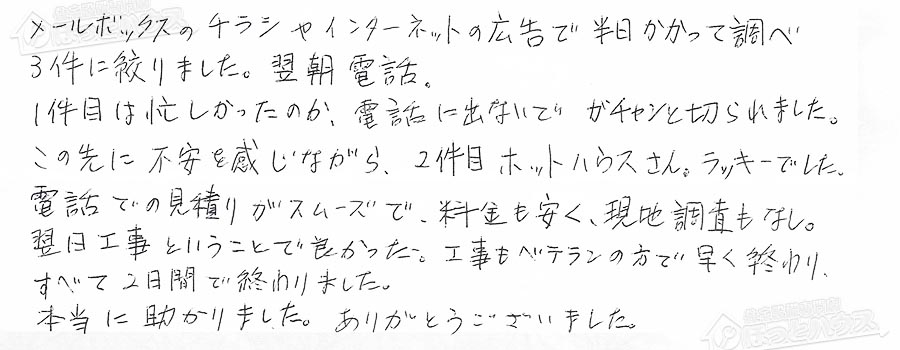 メールボックスのチラシやインターネットの広告で半日かかって調べ
3件に絞りました。翌朝電話。
1件目は忙しかったのか、電話に出ないでガチャンと切られました。
この先に不安を感じながら、2件目ホットハウスさん。ラッキーでした、
電話での見積りがスムーズで、料金も安く、現地調査もなし。
翌日工事ということで良かった。工事もベテランの方で早く終わり、
すべて2日間で終わりました。
本当に助かりました。ありがとうございました。
ほっとハウス